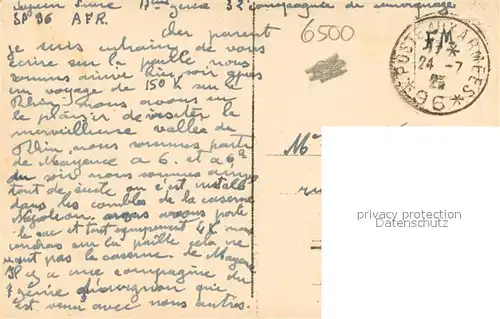 17ème génie 32 compagnie de
SP 96 AFR.
6500
F.M.
POSTE AUX ARMÉES
24 - 7
25
*96*
Cher parent
je suis entrain de vous
écrire sur la paille nous
sommes arrivé hier soir après
un voyage de 150 k sur le
Rhin, nous avons eu
le plaisir de visiter la
merveilleuse vallée du
Rhin nous sommes parti
de Mayence a 6. et a 6h
du soir nous sommes arrivé
tout de suite on c'est installé
dans les combles de la caserne
Napoléon avons porté
le sac et tout équipement 4 k nous
couchons sur la paille cela ne
vaut pas la caserne de Mayence
Il y a une compagnie du
7ème qui
est venu avec nous autres.
M
ru
privacy protection
Datenschutz